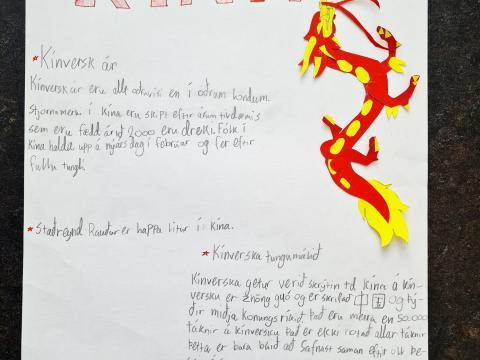 KÍNA
Kínversk ár
Kínversk ár eru allt oðruvísi en í oðrum londum.
Stjornumerki í Kína eru skipt eftir árum tildæmis
sem eru fædd árið 2000 eru dreki. Fólk í
Kína halda upp á nýárs dag í febrúar og fer eftir
fullu tungli
Staðreynd: Rauður er happa litur í Kína.
Kínverska tungumálið
Kínverska getur verið skrýtin td Kína á kín-
versku er Zhōng guó og er skrifað 中国 og þý-
ðir miðja konungs ríkið. Það eru meira en 50.000
táknir á kínversku það er ekki notað allar táknir
þetta er bara búið að safnast saman eftir öll